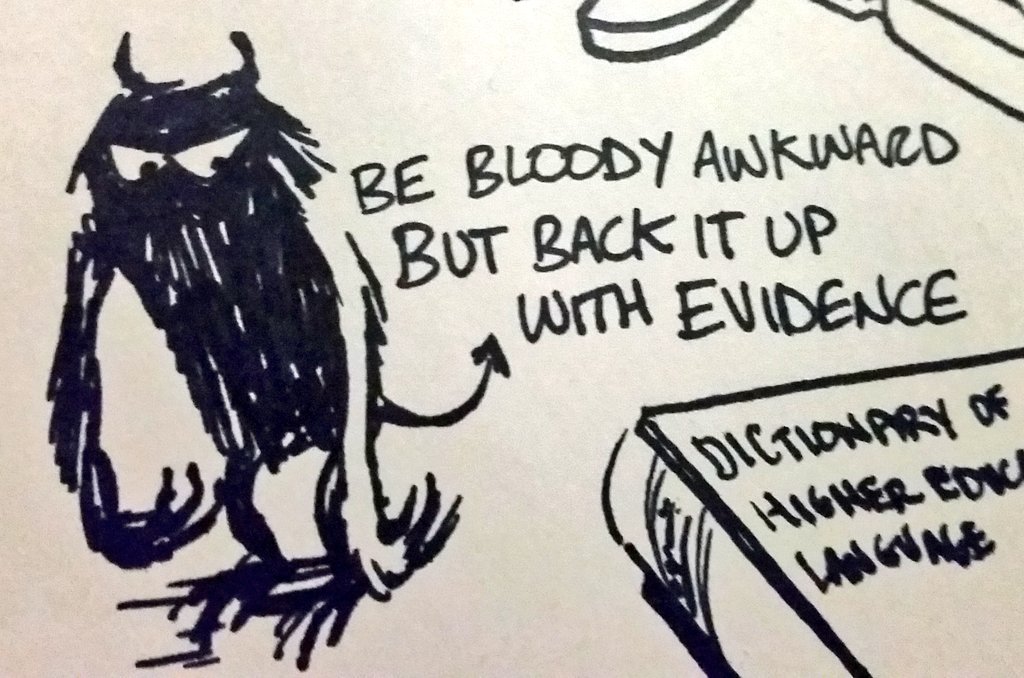 BE BLOODY AWKWARD
BUT BACK IT UP
WITH EVIDENCE
DICTIONARY OF
HIGHER EDUC
LANGUAGE